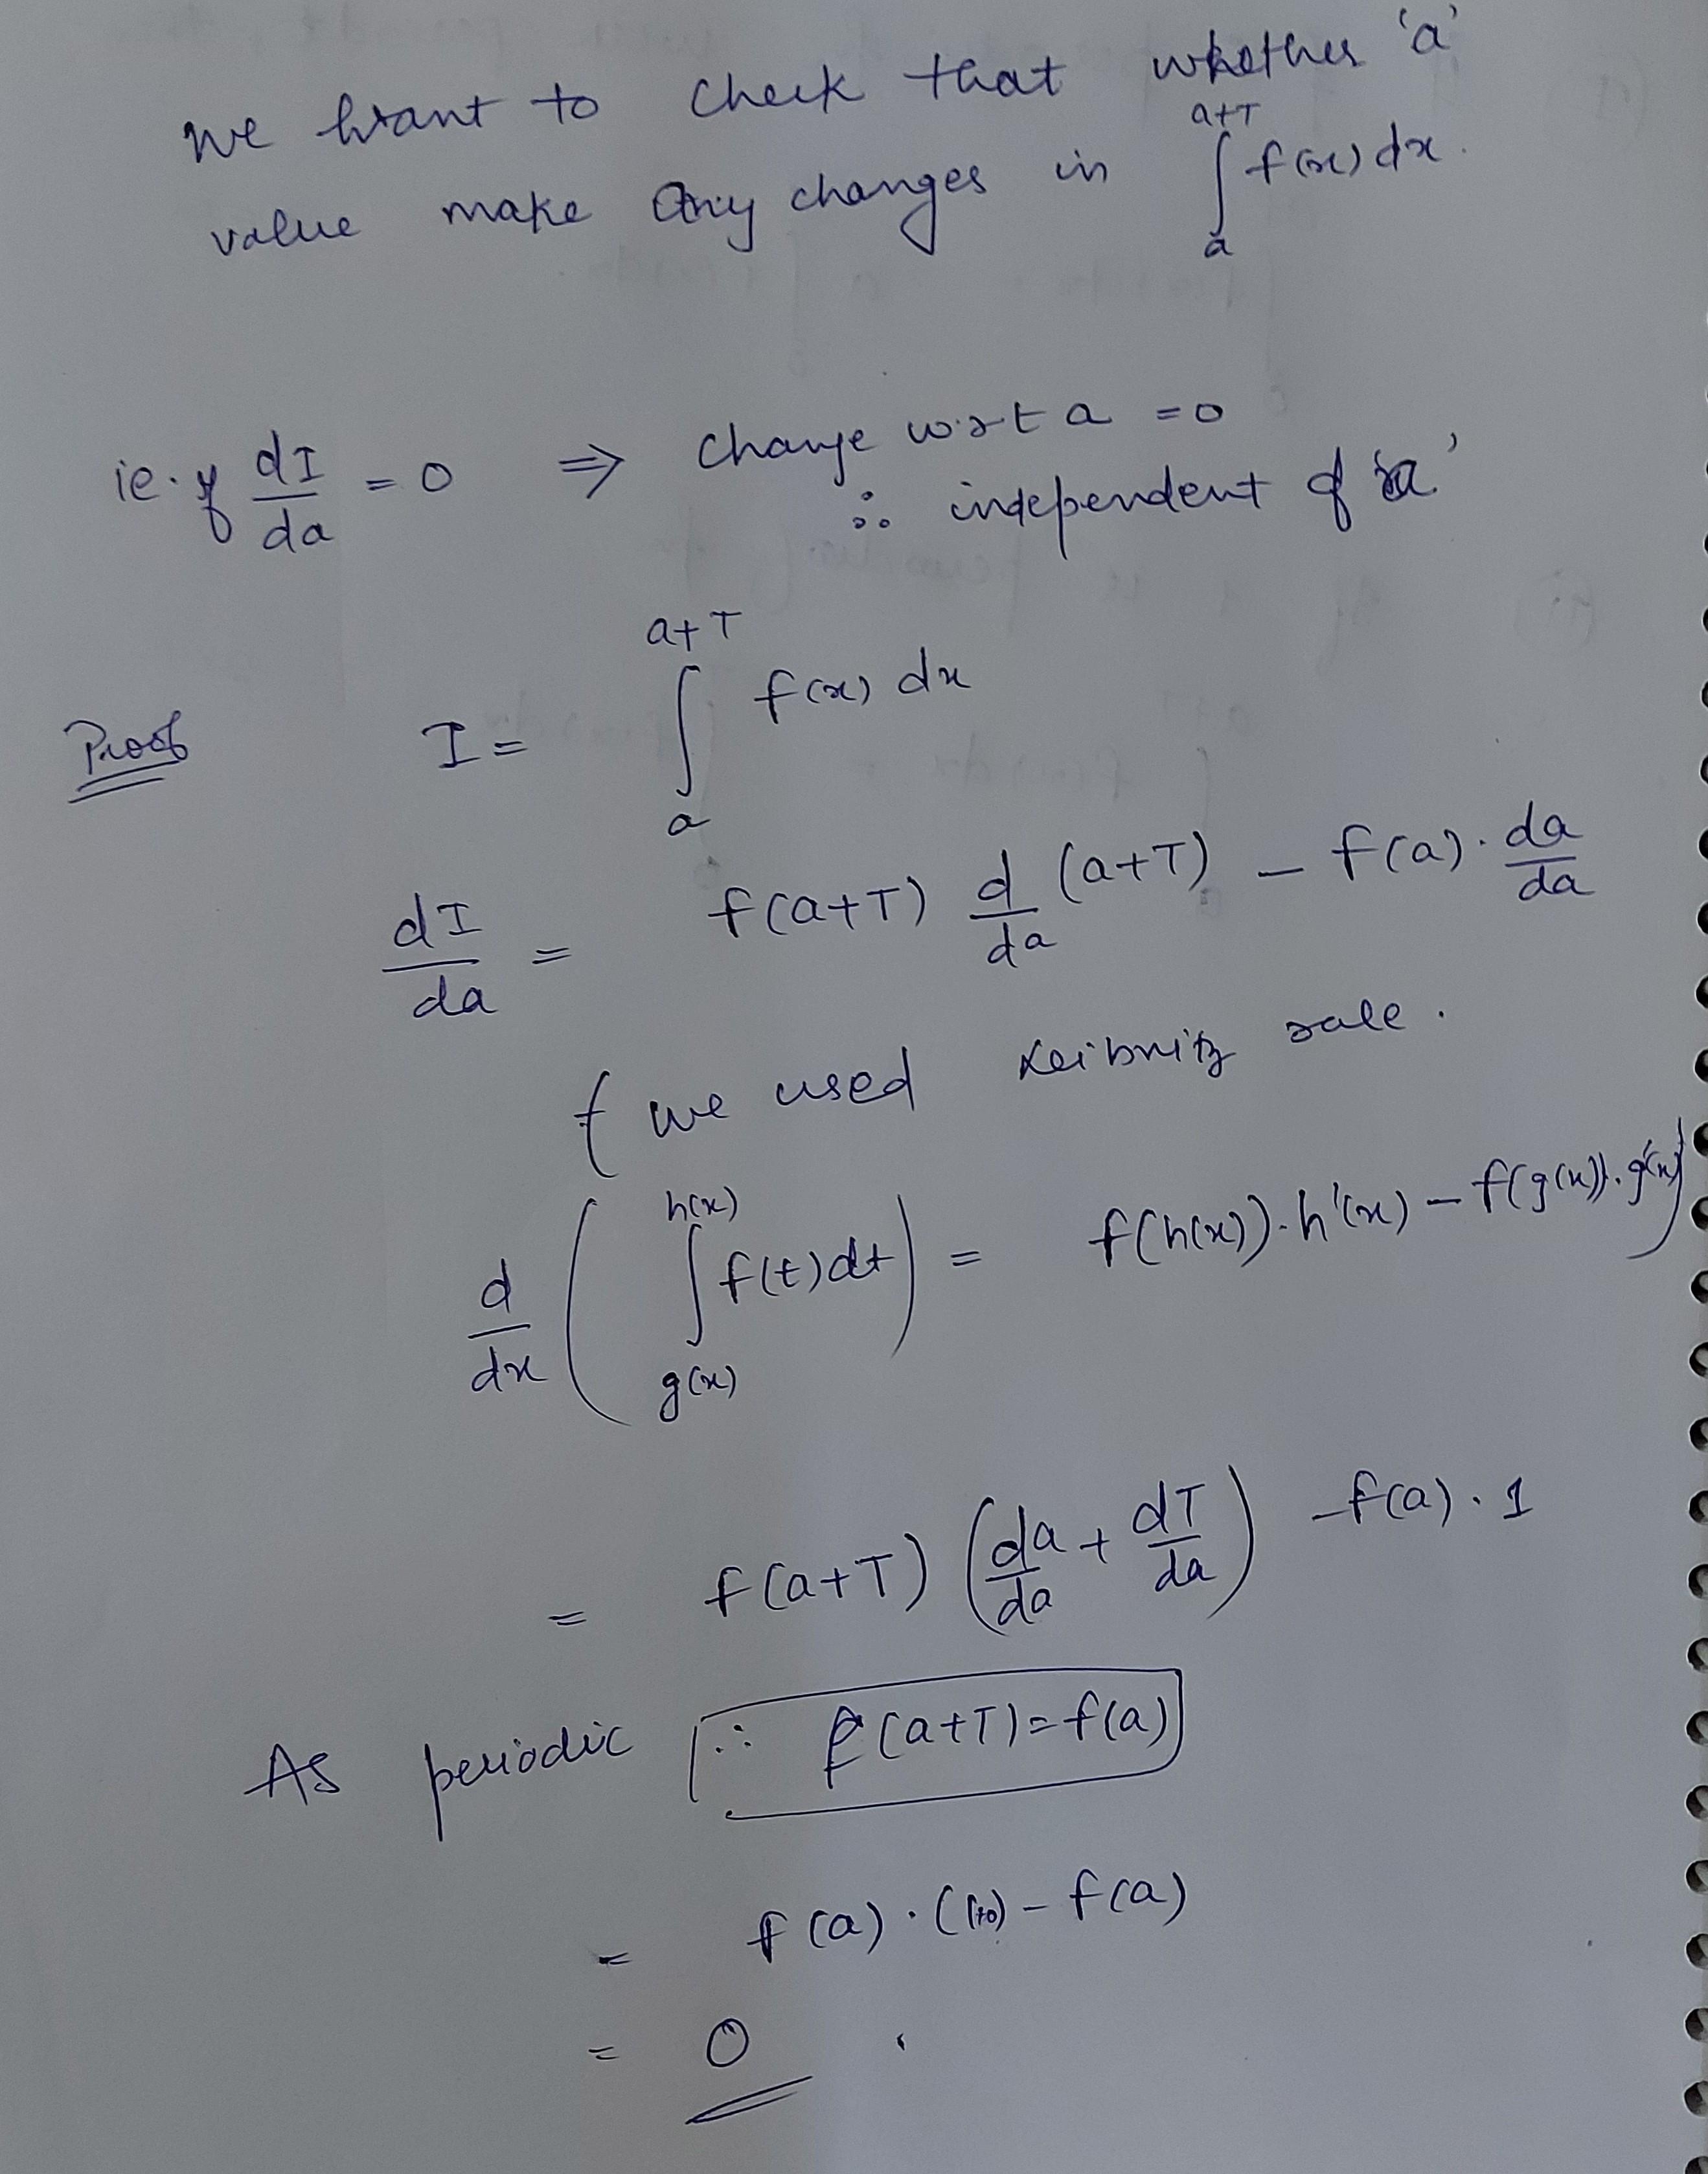 we want to check that whether 'a'
value make any changes in ∫_a^{a+T} f(x) dx.
ie. if dI/da = 0 ⇒ change w.r.t a = 0
∴ independent of 'a'
Proof I = ∫_a^{a+T} f(x) dx
dI/da = f(a+T) d/da (a+T) - f(a) . da/da
{ we used Leibnitz rule .
d/dx ( ∫_{g(x)}^{h(x)} f(t) dt ) = f(h(x)) . h'(x) - f(g(x)) . g'(x) }
= f(a+T) ( da/da + dT/da ) - f(a) . 1
As periodic ∴ f(a+T) = f(a)
= f(a) . (1+0) - f(a)
= 0